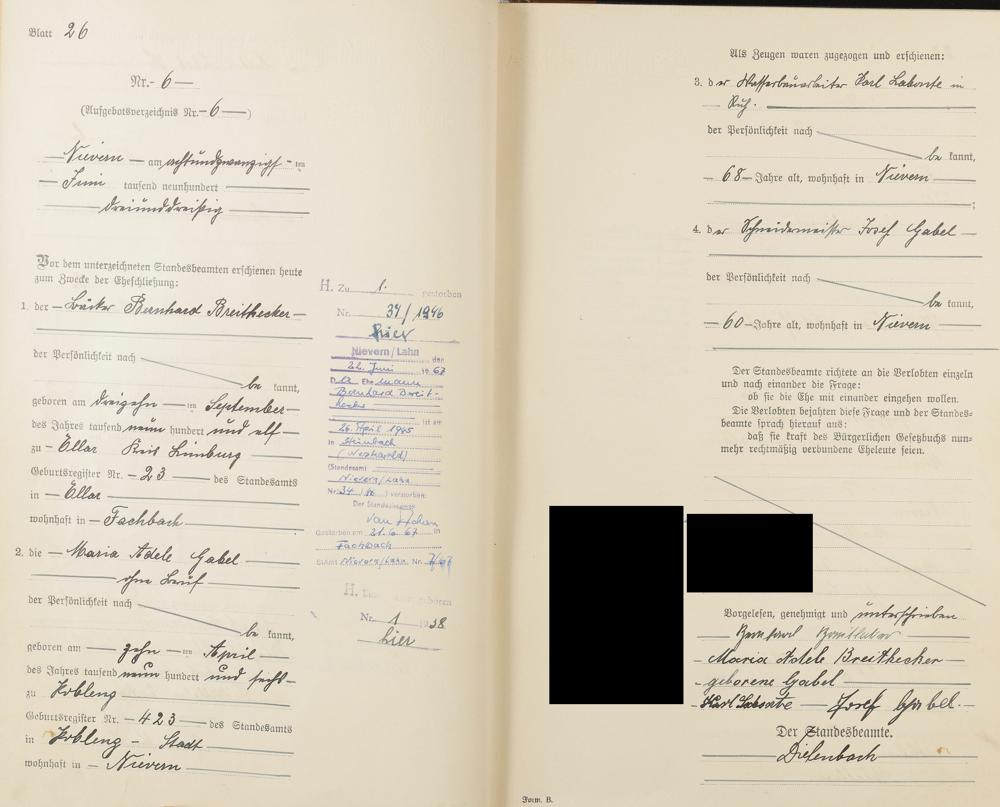 Blatt 26
Nr. 6
(Aufgebotsverzeichnis Nr. 6)
Nievern am achtundzwanzigsten
Juni tausend neunhundert
dreiunddreißig
Vor dem unterzeichneten Standesbeamten erschienen heute
zum Zwecke der Eheschließung:
1. der Bäcker Bernhard Breithecker
der Persönlichkeit nach
be kannt,
geboren am dreizehnten September
des Jahres tausend neun hundert und elf
zu Ellar Kreis Limburg
Geburtsregister Nr. 23 des Standesamts
in Ellar
wohnhaft in Fachbach
2. die Maria Adele Gabel
ohne Beruf
der Persönlichkeit nach
be kannt,
geboren am zehnten April
des Jahres tausend neun hundert und sechs
zu Koblenz
Geburtsregister Nr. 423 des Standesamts
in Koblenz - Stadt
wohnhaft in Nievern
H. Zu 1. gestorben
Nr. 34/1946
hier
Nievern/Lahn den
22. Juni 1967
Ehemann
Bernhard Breit-
hecker
ist am
26. April 1945
in Steinbach
(Standesamt
Nievern/Lahn
Nr. 34/46) verstorben.
Der Standesbeamte
Gestorben am 21.6.67 in
Fachbach
StAmt Nievern/Lahn Nr. 7/67
H. geboren
Nr. 1 1938
hier
Als Zeugen waren zugezogen und erschienen:
3. der Wasserbauarbeiter Karl Labonte in
Ruh.
der Persönlichkeit nach
be kannt,
68 Jahre alt, wohnhaft in Nievern
;
4. der Schneidermeister Josef Gabel
der Persönlichkeit nach
be kannt,
60 Jahre alt, wohnhaft in Nievern
Der Standesbeamte richtete an die Verlobten einzeln
und nach einander die Frage:
ob sie die Ehe mit einander eingehen wollen.
Die Verlobten bejahten diese Frage und der Standes-
beamte sprach hierauf aus:
daß sie kraft des Bürgerlichen Gesetzbuchs nun-
mehr rechtmäßig verbundene Eheleute seien.
Vorgelesen, genehmigt und unterschrieben
Bernhard Breithecker
Maria Adele Breithecker
geborene Gabel
Karl Labonte Josef Gabel.
Der Standesbeamte.
Diefenbach
Form. B.